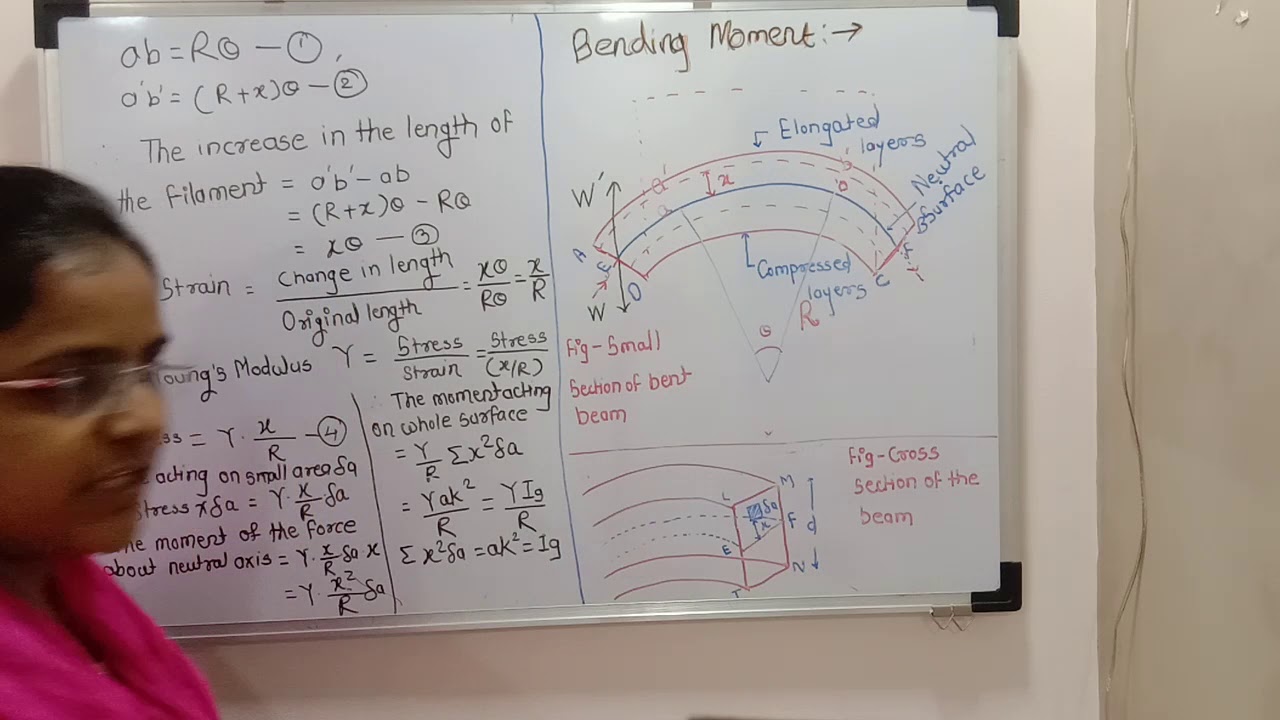 ab = Rθ — ①,
a'b' = (R+x)θ — ②
The increase in the length of
the filament = a'b' - ab
= (R+x)θ - Rθ
= xθ — ③
Strain = Change in length / Original length = xθ/Rθ = x/R
Young's Modulus Y = Stress/Strain = Stress/(x/R)
= Y. x/R — ④
acting on small area δa
Stress x δa = Y. x/R δa
moment of the force
about neutral axis = Y. x/R δa. x
= Y. x²/R δa
∴ The moment acting
on whole surface
= Y/R Σx²δa
= Yak²/R = YIg/R
Σx²δa = ak² = Ig
Bending Moment:→
Elongated
layers
Neutral
Surface
W'
a'
x
b'
a
b
A
E
D
W
B
F
Y
C
Compressed
layers
R
θ
Fig-Small
Section of bent
beam
Fig-Cross
Section of the
beam
L
M
δa
x
F
d
E
N
T